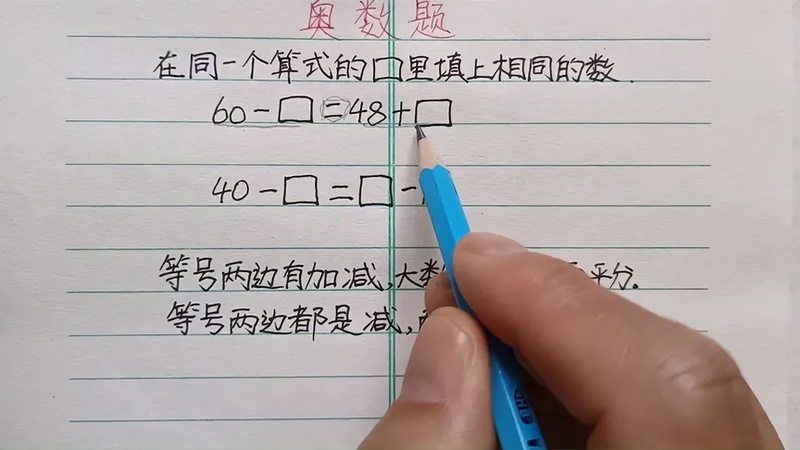 奥数题
在同一个算式的□里填上相同的数.
60-□=48+□
40-□=□-
等号两边有加减,大数 平分.
等号两边都是减,